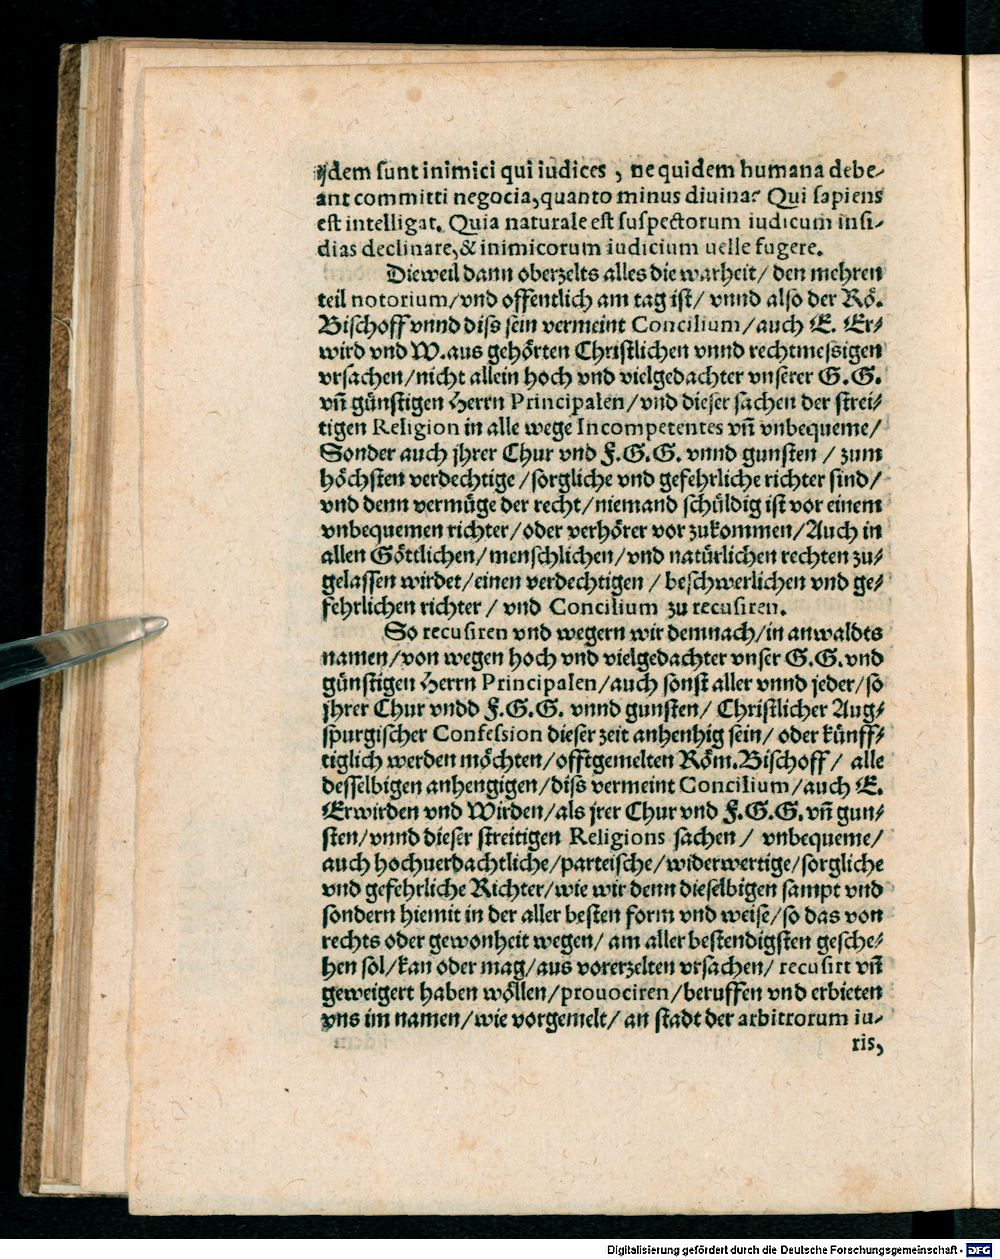 ijdem sunt inimici qui iudices, ne quidem humana debe-
ant committi negocia, quanto minus diuina? Qui sapiens
est intelligat. Quia naturale est suspectorum iudicum insi-
dias declinare, & inimicorum iudicium uelle fugere.
Dieweil dann oberzelts alles die warheit/ den mehren
teil notorium/vnd offentlich am tag ist/ vnnd also der Rö.
Bischoff vnnd diss sein vermeint Concilium/auch E. Er-
wird vnd W.aus gehörten Christlichen vnnd rechtmessigen
vrsachen/nicht allein hoch vnd vielgedachter vnserer G.G.
vn̄ günstigen Herrn Principalen/vnd dieser sachen der strei-
tigen Religion in alle wege Incompetentes vn̄ vnbequeme/
Sonder auch jhrer Chur vnd F.G.G. vnnd gunsten / zum
höchsten verdechtige /sorgliche vnd gefehrliche richter sind/
vnd denn vermüge der recht/niemand schüldig ist vor einem
vnbequemen richter/oder verhörer vor zukommen/Auch in
allen Göttlichen/menschlichen/vnd natürlichen rechten zu-
gelassen wirdet/einen verdechtigen / beschwerlichen vnd ge-
fehrlichen richter / vnd Concilium zu recusiren.
So recusiren vnd wegern wir demnach/in anwaldts
namen/von wegen hoch vnd vielgedachter vnser G.G.vnd
günstigen Herrn Principalen/auch sonst aller vnnd jeder/so
jhrer Chur vndd F.G.G. vnnd gunsten/ Christlicher Aug-
spurgischer Confession dieser zeit anhenhig sein/ oder künff-
tiglich werden möchten/offtgemelten Röm.Bischoff/ alle
desselbigen anhengigen/diss vermeint Concilium/auch E.
Erwirden vnd Wirden/als jrer Chur vnd F.G.G.vn̄ gun-
sten/vnnd dieser streitigen Religions sachen / vnbequeme/
auch hochuerdachtliche/parteische/widerwertige/sorgliche
vnd gefehrliche Richter/wie wir denn dieselbigen sampt vnd
sondern hiemit in der aller besten form vnd weise/so das von
rechts oder gewonheit wegen/ am aller bestendigsten gesche-
hen sol/kan oder mag/aus vorerzelten vrsachen/ recusirt vn̄
geweigert haben wöllen/prouociren/beruffen vnd erbieten
vns im namen/wie vorgemelt/ an stadt der arbitrorum iu-
ris,
Digitalisierung gefördert durch die Deutsche Forschungsgemeinschaft - DFG